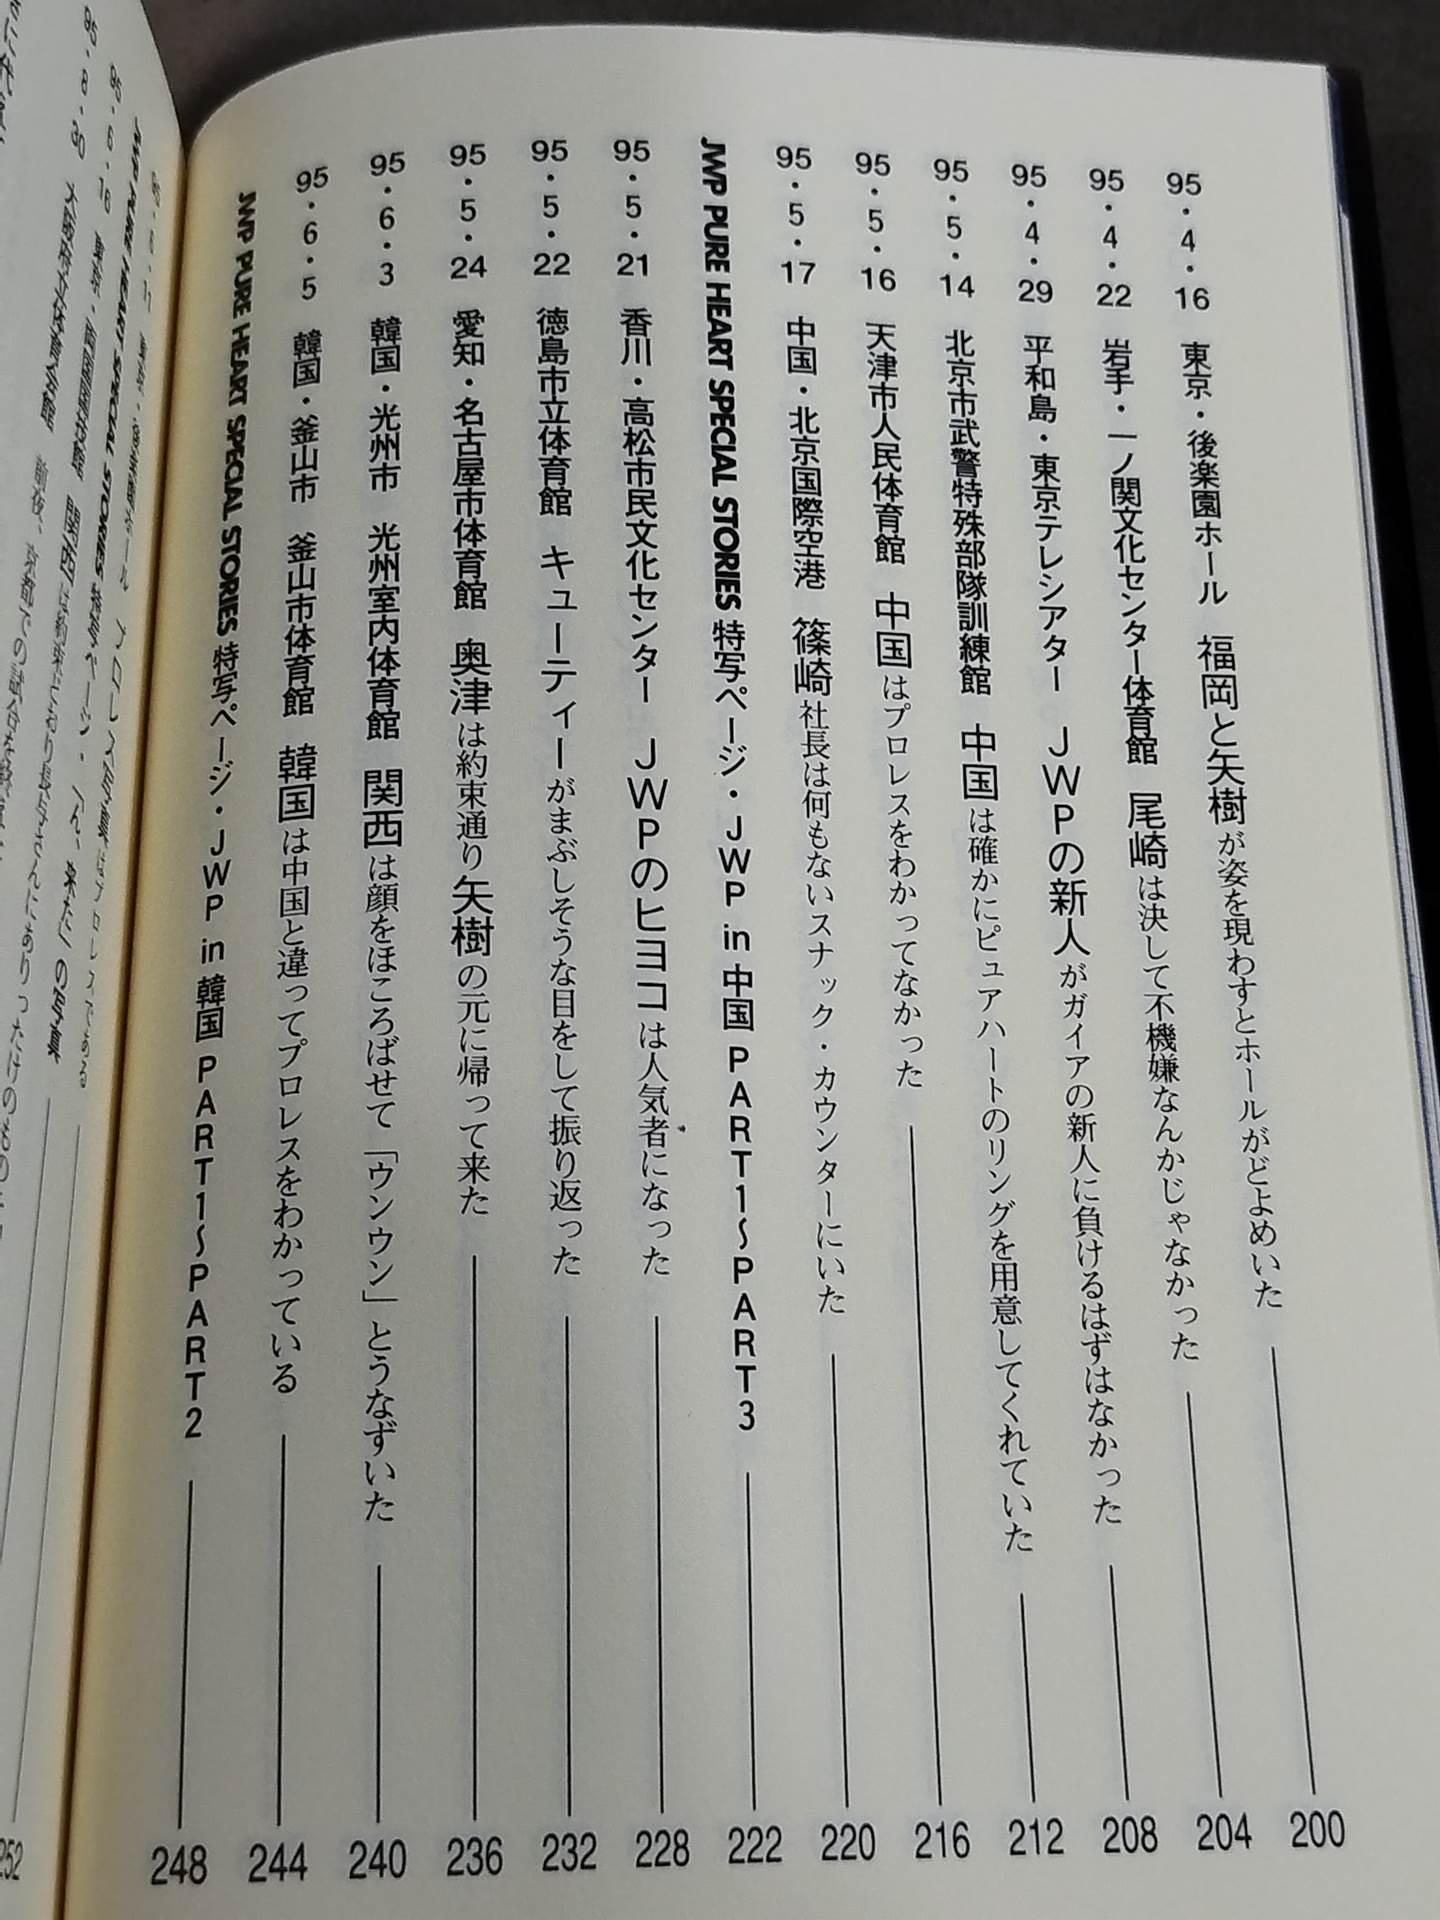 95・4・16 東京・後楽園ホール 福岡と矢樹が姿を現わすとホールがどよめいた 200
95・4・22 岩手・一ノ関文化センター体育館 尾崎は決して不機嫌なんかじゃなかった 204
95・4・29 平和島・東京テレシアター JWPの新人がガイアの新人に負けるはずはなかった 208
95・5・14 北京市武警特殊部隊訓練館 中国は確かにピュアハートのリングを用意してくれていた 212
95・5・16 天津市人民体育館 中国はプロレスをわかってなかった 216
95・5・17 中国・北京国際空港 篠崎社長は何もないスナック・カウンターにいた 220
JWP PURE HEART SPECIAL STORIES 特写ページ・JWP in 中国 PART1〜PART3 222
95・5・21 香川・高松市民文化センター JWPのヒヨコは人気者になった 228
95・5・22 徳島市立体育館 キューティーがまぶしそうな目をして振り返った 232
95・5・24 愛知・名古屋市体育館 奥津は約束通り矢樹の元に帰って来た 236
95・6・3 韓国・光州市 光州室内体育館 関西は顔をほころばせて「ウンウン」とうなずいた 240
95・6・5 韓国・釜山市 釜山市体育館 韓国は中国と違ってプロレスをわかっている 244
JWP PURE HEART SPECIAL STORIES 特写ページ・JWP in 韓国 PART1〜PART2 248
JWP PURE HEART SPECIAL STORIES 特写ページ・
95・6・16 東京・両国国技館 関西は約束どおり長与さんにありったけのもの
95・8・30 大阪府立体育会館 前夜、京都での試合を終
252